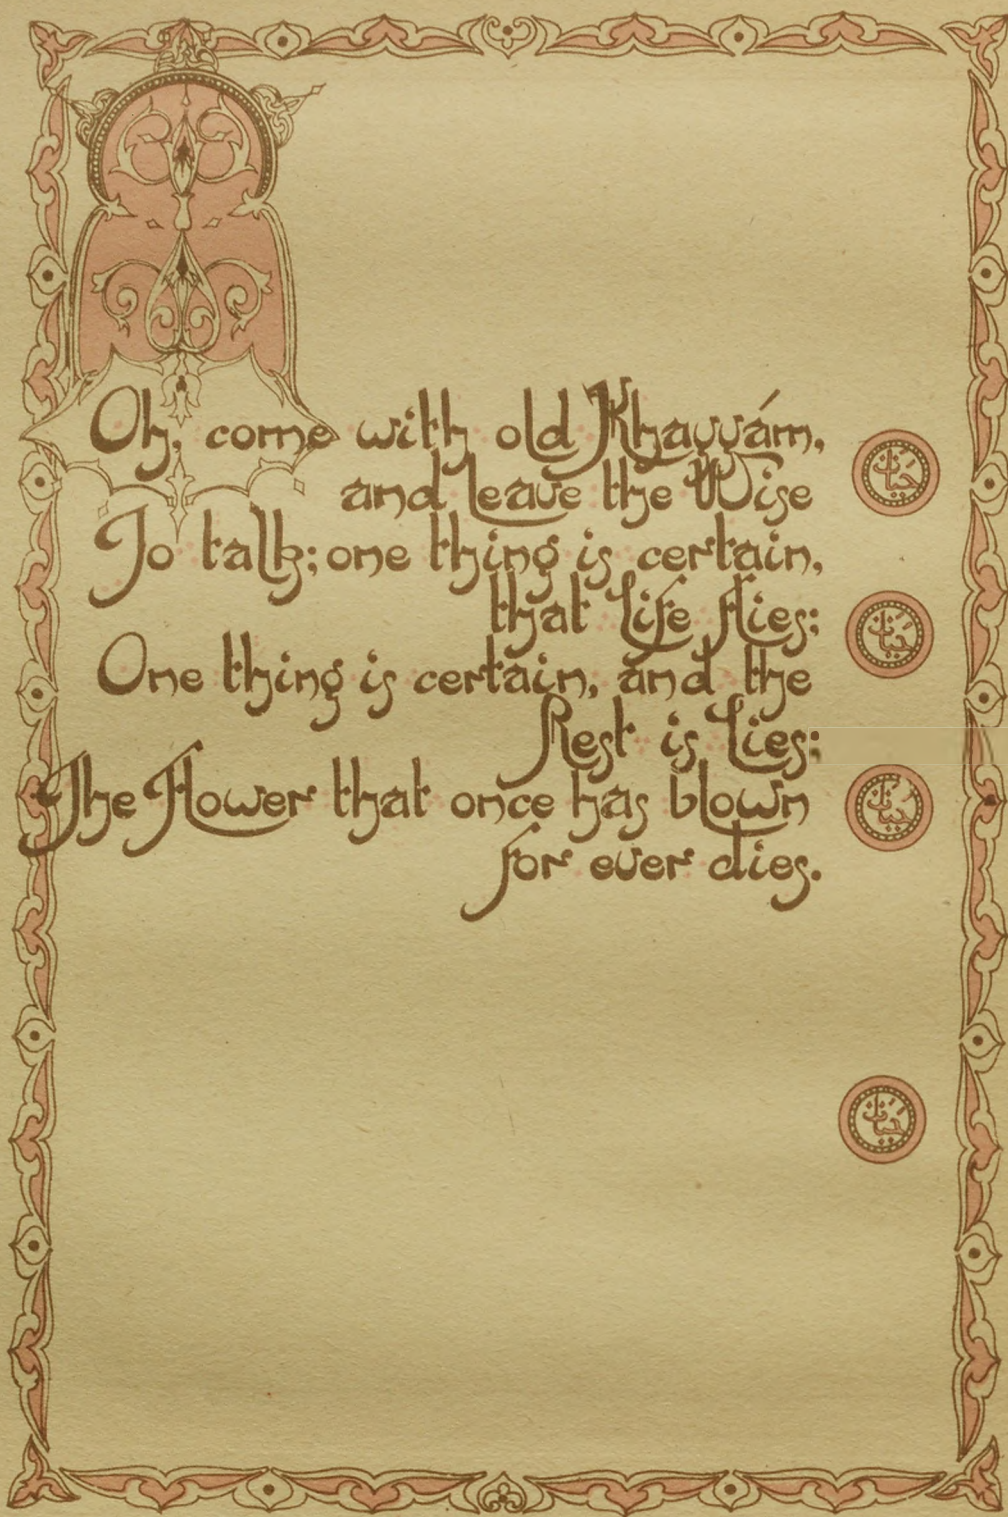 Oh, come with old Khayyám,
and leave the Wise
To talk; one thing is certain,
that Life flies;
One thing is certain, and the
Rest is Lies;
The Flower that once has blown
for ever dies.